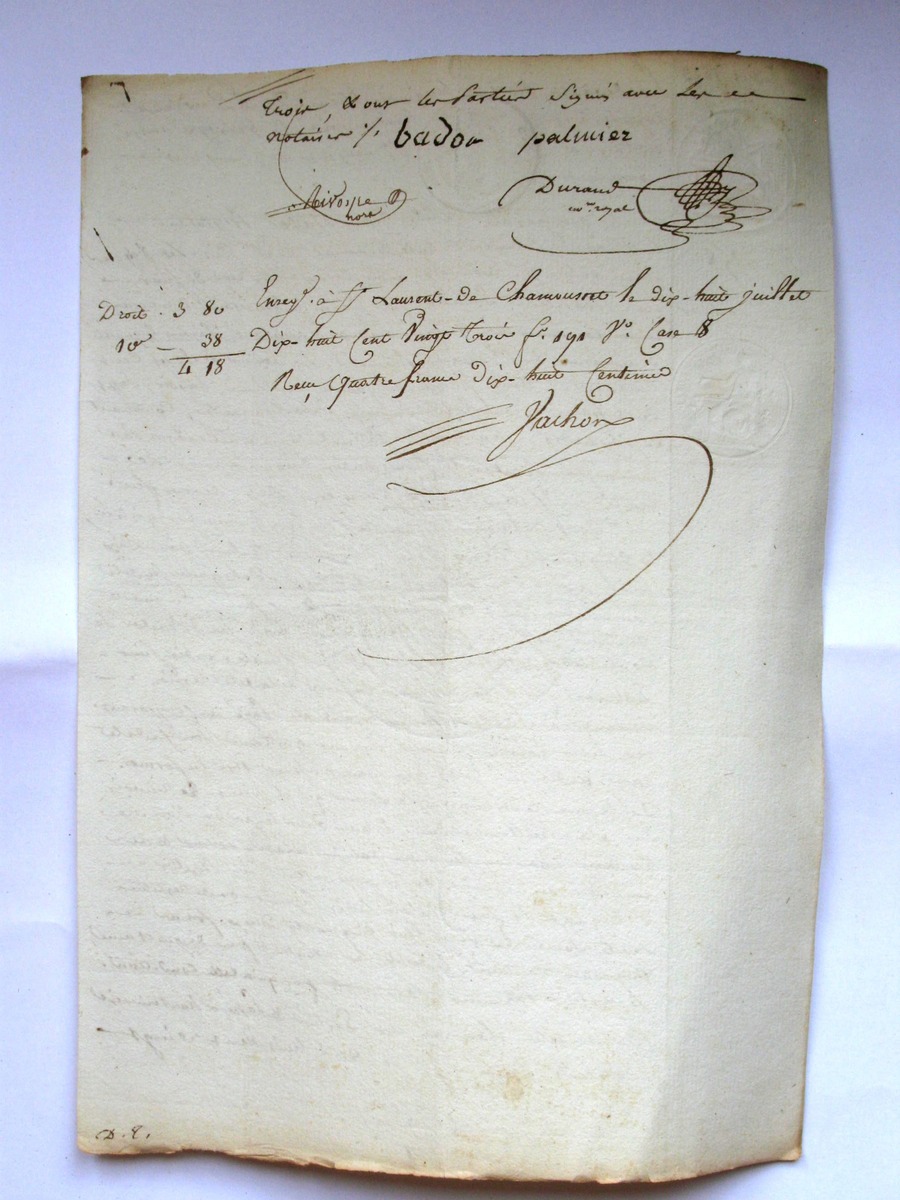 Trois, & ont les Parties Signé avec Les
notaires ·/. badou palmier
Rivoire
nore
Durand
no.re royal
Droit . 3 80
10e — 38
4 18
Enregt. à St Laurent-de Chamousset le dix-huit juillet
Dix-huit Cent Vingt Trois fo. 191 Vo. Case 8
Reçu Quatre francs Dix-huit Centimes
Vachon
D. E.